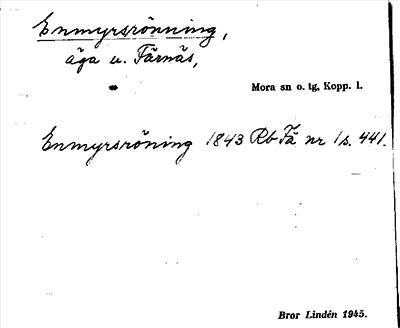 Enmyrsrönning,
äga u. Färnäs,
Mora sn o. tg, Kopp. l.
Enmyrsröning 1843 Rb Fä nr 1 s. 441.
Bror Lindén 1945.